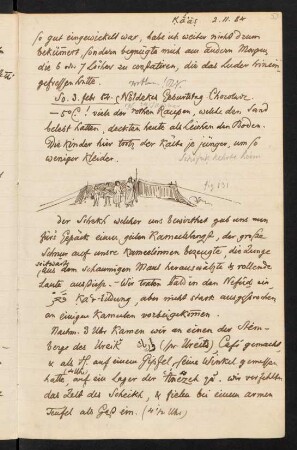 Kâ'ès 2.II.84 53
so gut eingewickelt war, habe ich weiter nicht drum
bekümert, sondern begnügte mich am andern Morgen
die 6 od. 7 Löcher zu constatiren, die das Luder hinein-
gefressen hatte.
So. 3. febr 84. Nöldeke Geburtstag
– 5° C! viele der rothen Raupen, welche den Sand
belebt hatten, deckten heute als Leichen den Boden.
Die Kinder hier trotz der Kälte je jünger, um so
weniger Kleider.
fig 131
der Schêkh welcher uns bewirthet gab uns von
fürs Gepäck einen guten Kameelhengst, der große
Schnur auf unsre Kameelinnen bezeugte, die Zunge
seitwärts aus dem schaumigen Maul heraushängte & rollende
Laute ausstieß. – Wir treten bald in den Nefûd ein
Ka'r bildung, aber nicht stark ausgesprochen
an einigen Kamelen vorbeigekommen.
Nachm. 3 Uhr kamen wir an einen der Stein-
berge des Ureik (pr Ureits) Café gemacht
& als H. auf einem Gipfel seine Winkel gemessen
hatte, auf ein Lager der zu. wir verfehlten
das Zelt des Scheikh, & fielen bei einem armen
Teufel als Gast ein. (4½ Uhr)